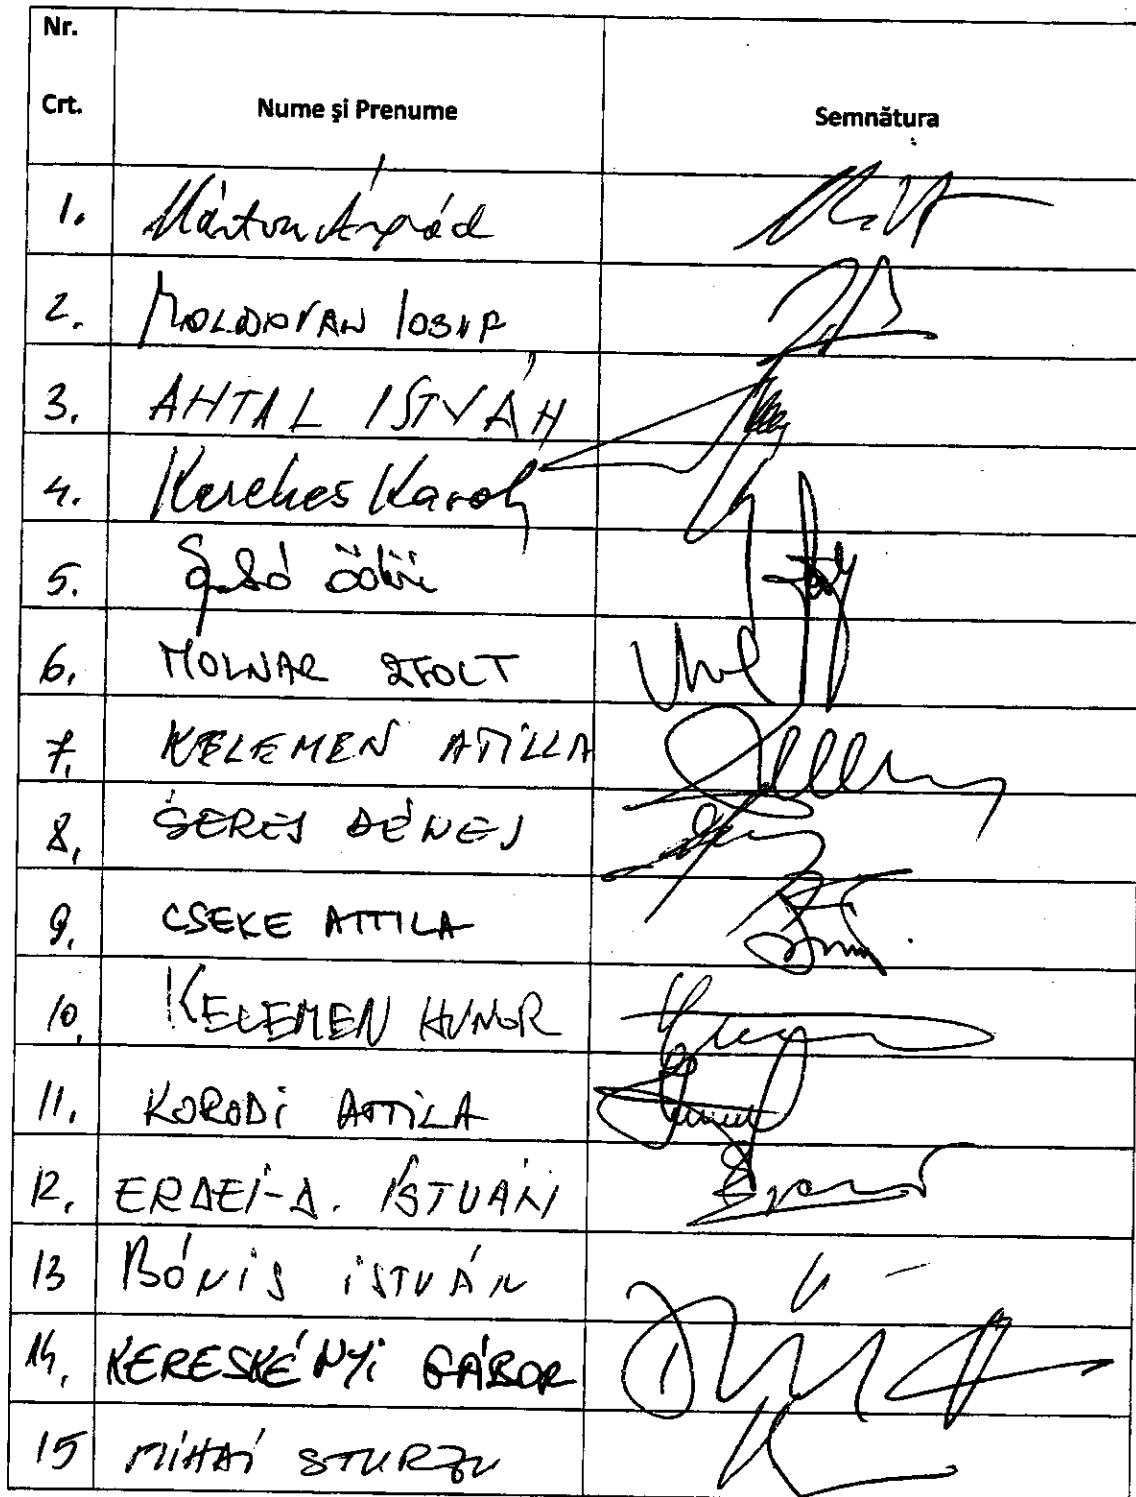 Nr.
Crt.
Nume și Prenume
Semnătura
1. Márton Árpád
2. MOLDOVAN IOSIF
3. ANTAL ISTVÁN
4. Kerekes Karoly
5.
6. MOLNAR ZSOLT
7. KELEMEN ATILLA
8. SERES DÉNES
9. CSEKE ATTILA
10. KELEMEN HUNOR
11. KORODI ATTILA
12. ERDEI-D. ISTVÁN
13 BÓNIS ISTVÁN
14. KERESKÉNYI GÁBOR
15 MIHAI STURZU